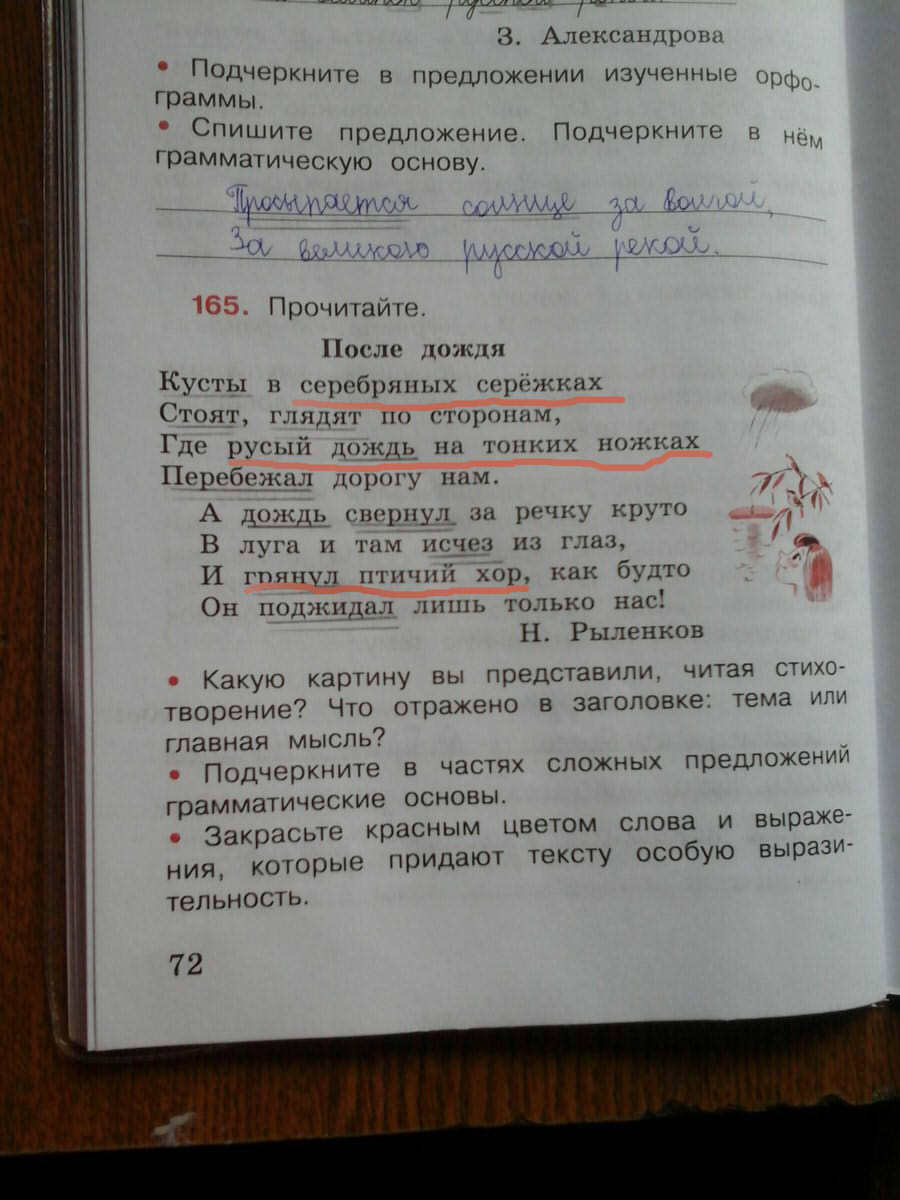 З. Александрова
• Подчеркните в предложении изученные орфо-
граммы.
• Спишите предложение. Подчеркните в нём
грамматическую основу.
Просыпается солнце за Волгой,
За великою русской рекой.
165. Прочитайте.
После дождя
Кусты в серебряных серёжках
Стоят, глядят по сторонам,
Где русый дождь на тонких ножках
Перебежал дорогу нам.
А дождь свернул за речку круто
В луга и там исчез из глаз,
И грянул птичий хор, как будто
Он поджидал лишь только нас!
Н. Рыленков
• Какую картину вы представили, читая стихо-
творение? Что отражено в заголовке: тема или
главная мысль?
• Подчеркните в частях сложных предложений
грамматические основы.
• Закрасьте красным цветом слова и выраже-
ния, которые придают тексту особую вырази-
тельность.
72